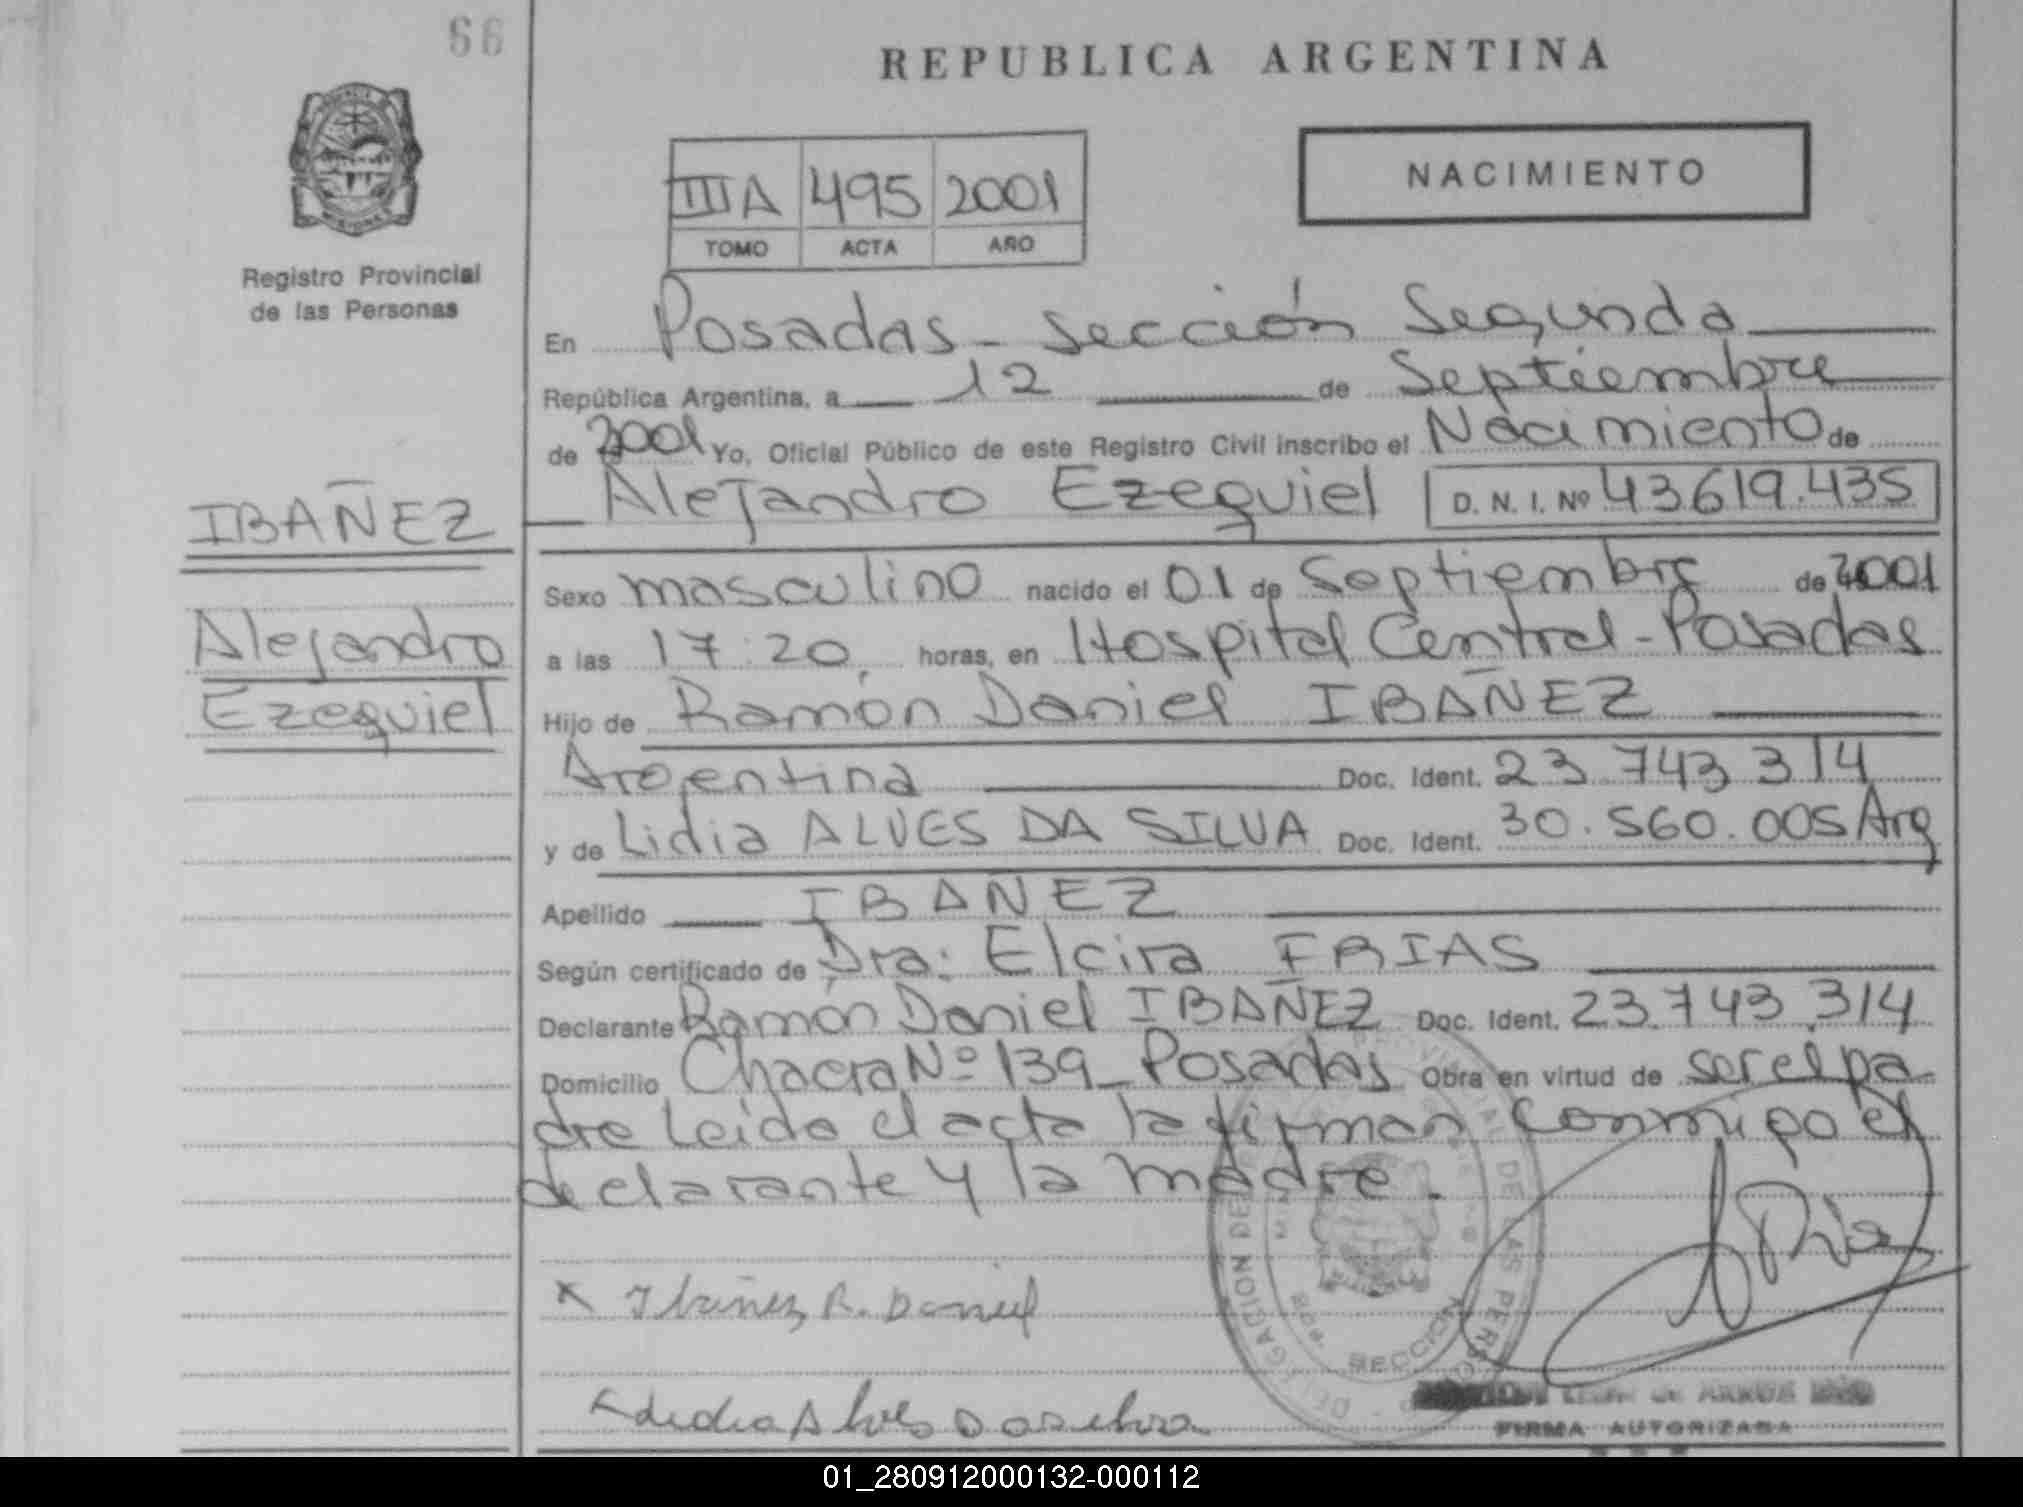 66
REPUBLICA ARGENTINA
NACIMIENTO
IIIA 495 2001
TOMO ACTA AÑO
Registro Provincial
de las Personas
En Posadas - Sección Segunda
República Argentina, a 12 de Septiembre
de 2001 Yo, Oficial Público de este Registro Civil inscribo el Nacimiento de
Alejandro Ezequiel D. N. I. Nº 43.619.435
IBAÑEZ
Alejandro
Ezequiel
Sexo masculino nacido el 01 de Septiembre de 2001
a las 17:20 horas, en Hospital Central - Posadas
Hijo de Ramón Daniel IBAÑEZ
Argentina Doc. Ident. 23.743.314
y de Lidia ALVES DA SILVA Doc. Ident. 30.560.005 Arg
Apellido IBAÑEZ
Según certificado de Dra: Elcira FRIAS
Declarante Ramón Daniel IBAÑEZ Doc. Ident. 23.743.314
Domicilio Chacra Nº 139 - Posadas Obra en virtud de ser el pa
dre Leida el acta la firman conmigo el
declarante y la madre.
x Ibañez R. Daniel
SECCION
FIRMA AUTORIZADA
01_280912000132-000112